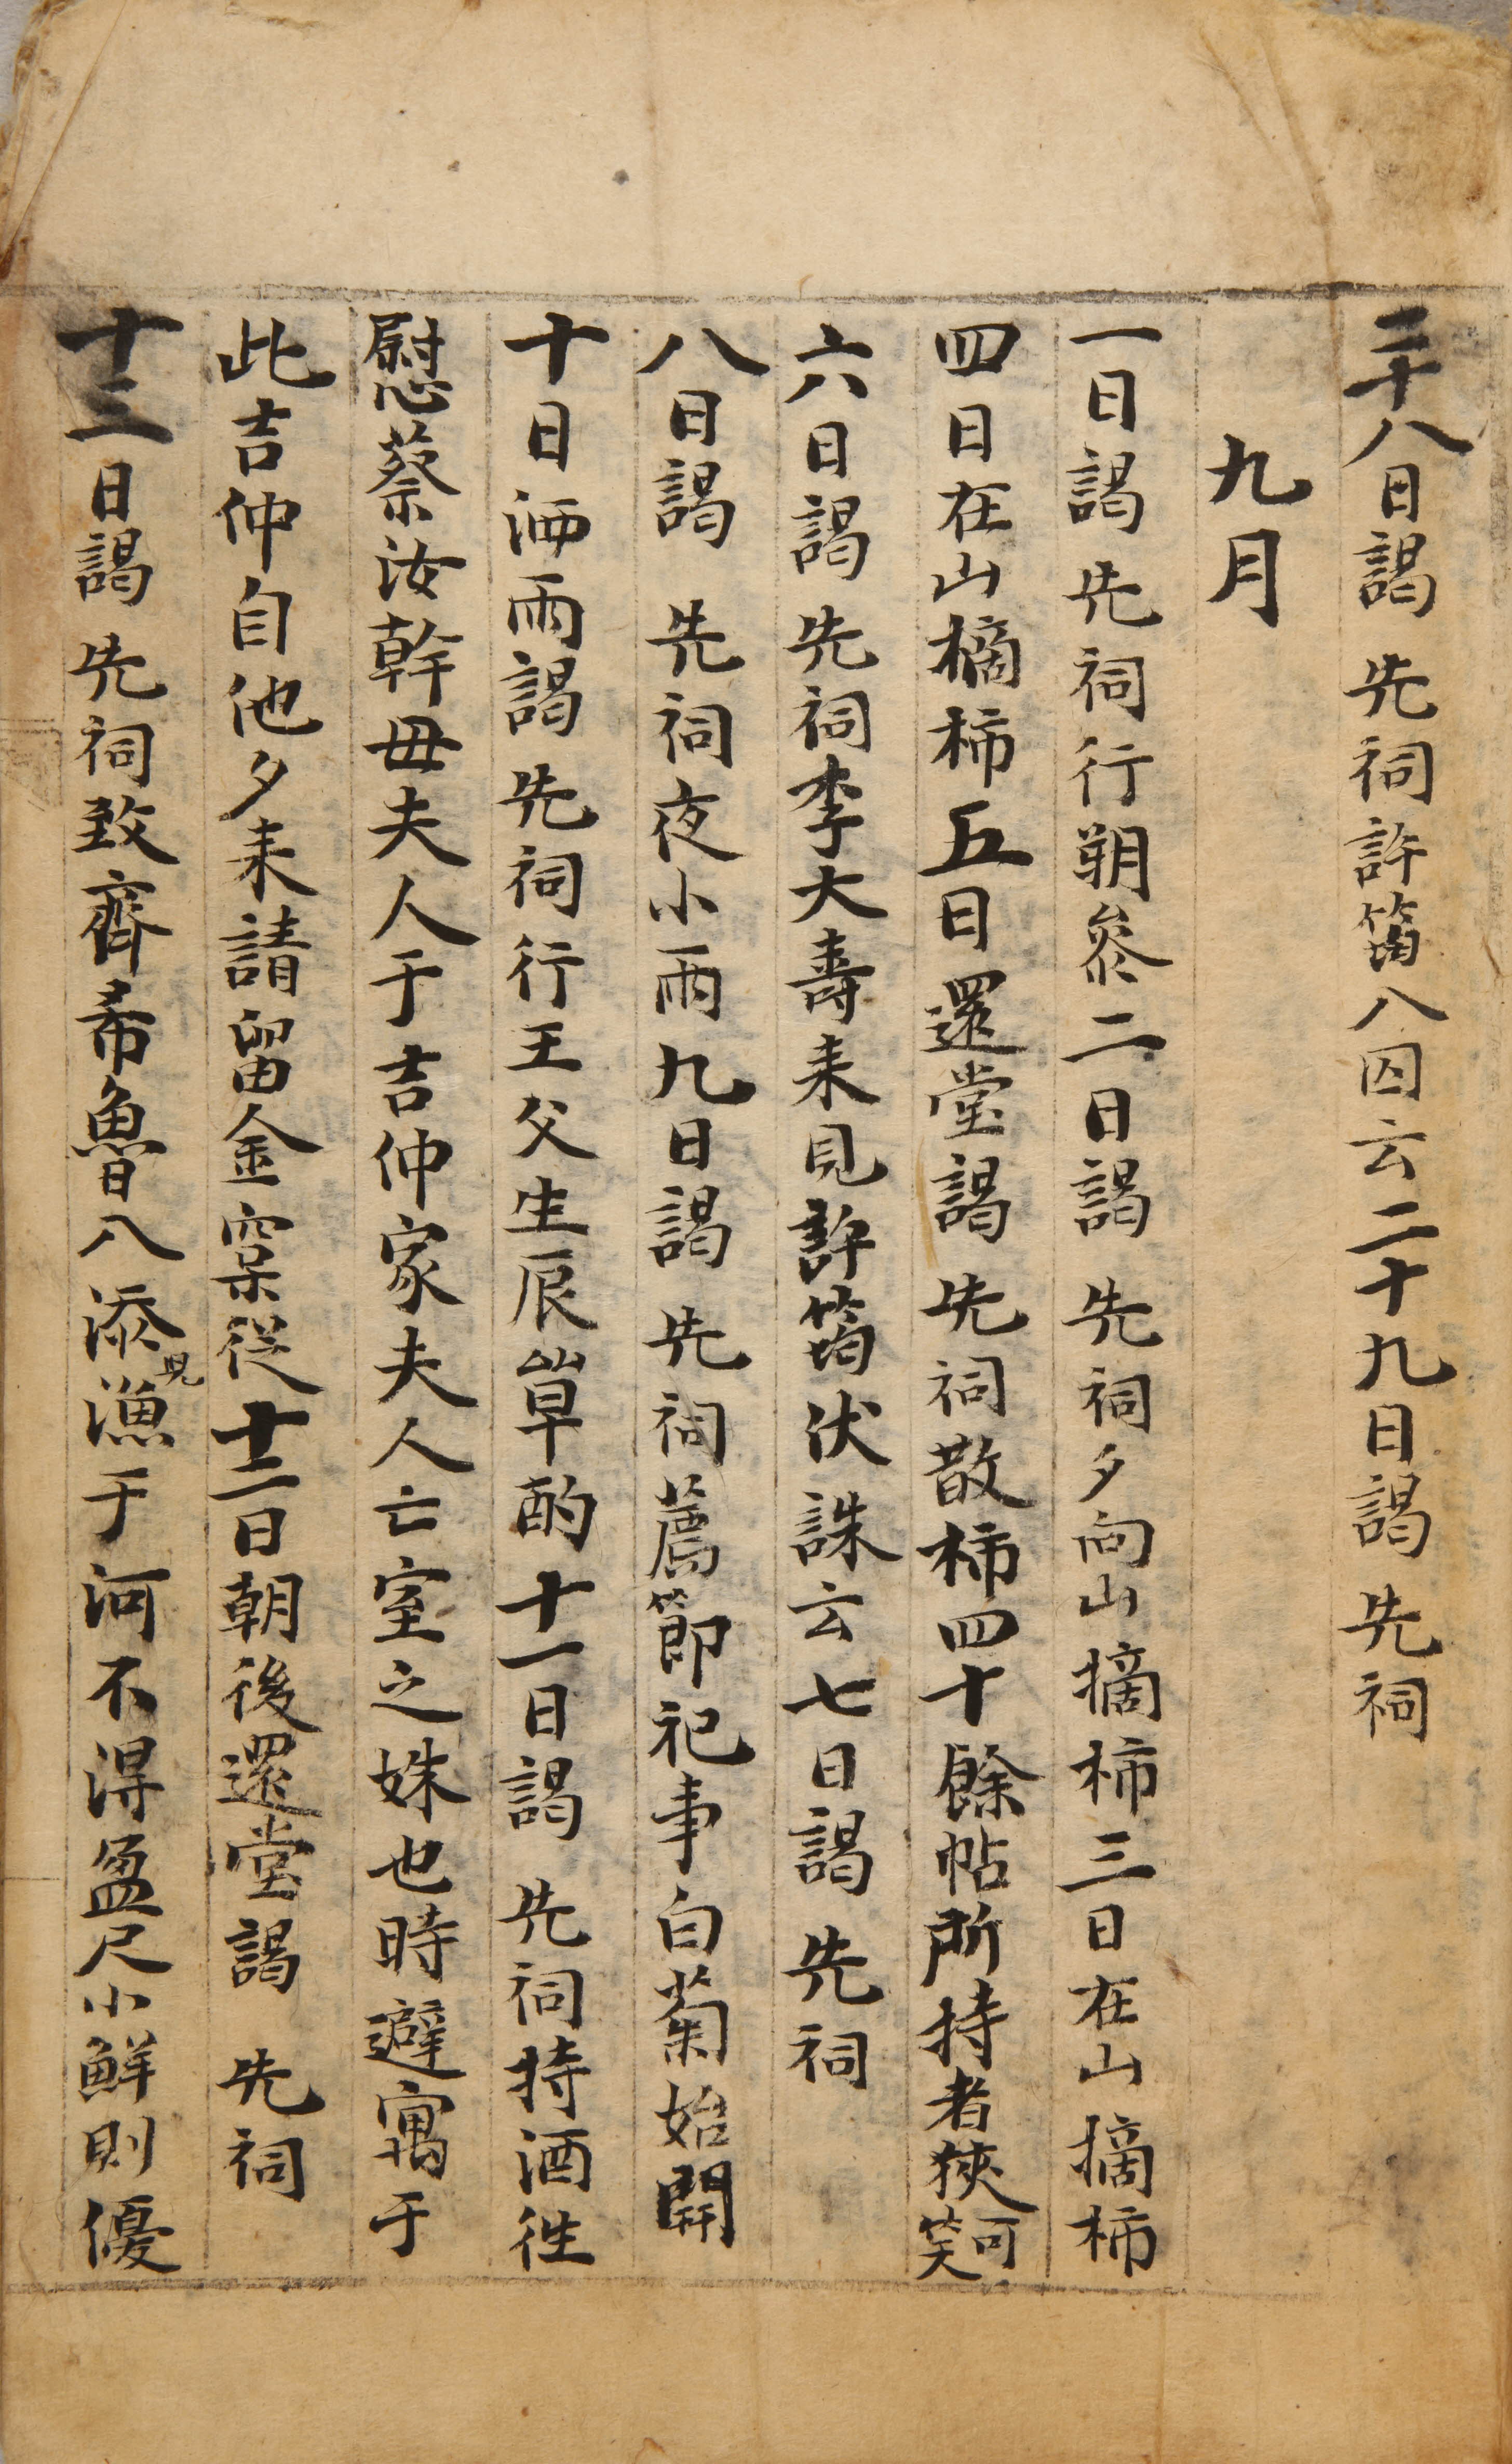 二十八日謁 先祠許筠八囚云二十九日謁 先祠
九月
一日謁 先祠行朔參二日謁 先祠夕向山摘柿三日在山摘柿
四日在山摘柿五日還堂謁 先祠散柿四十餘帖所持者狹可笑
六日謁 先祠李大壽来見許筠伏誅云七日謁 先祠
八日謁 先祠夜小雨九日謁 先祠薦節祀事白菊始開
十日洒雨謁 先祠行王父生辰單酌十一日謁 先祠持酒徃
慰蔡汝幹母夫人于吉仲家夫人亡室之姝也時避寓于
此吉仲自他夕来請留金寀從十二日朝後還堂謁 先祠
十三日謁 先祠致齊希魯入添兒漁于河不得盈尺小鮮則優